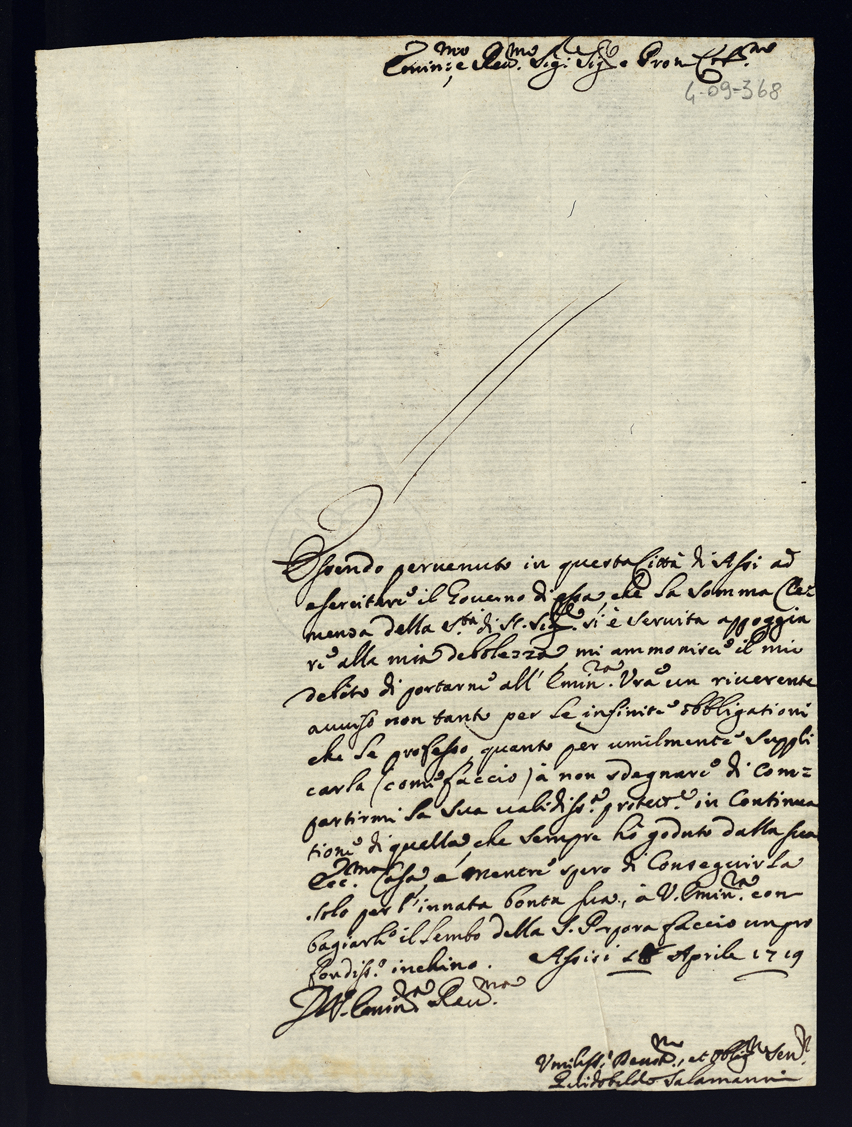 Emin:mo e Reu.mo Sig: Sig.e e Pron Col.mo
4-09-368
Essendo peruenuto in questa Città di Assi ad
esercitare il Gouerno di essa, che la somma Cle=
menza della S.tà di N. Sig.re si è seruita appoggia
re alla mia debolezza mi ammonisce il mio
debito di portarne all' Emin.za Vra un riuerente
auuiso non tanto per le infinite obbligationi
che le professo, quanto per umilmente suppli
carla (come faccio) à non sdegnare di Com=
partirmi la sua ualidiss.a protec.e in Continua
tione di quella, che sempre hò goduto dalla sua
Ecc.ma Casa, e mentre spero di Conseguirla
solo per l'innata bontà sua, à V. Emin.za con
bagiarle il lembo della S. Porpora faccio un pro
fondiss.o inchino. Assisi Aprile 1719
D. V. Emin.za Reu.ma
Vmiliss. Deuot.mo, et Obblig.mo Ser.re
Guidobaldo Salamanni